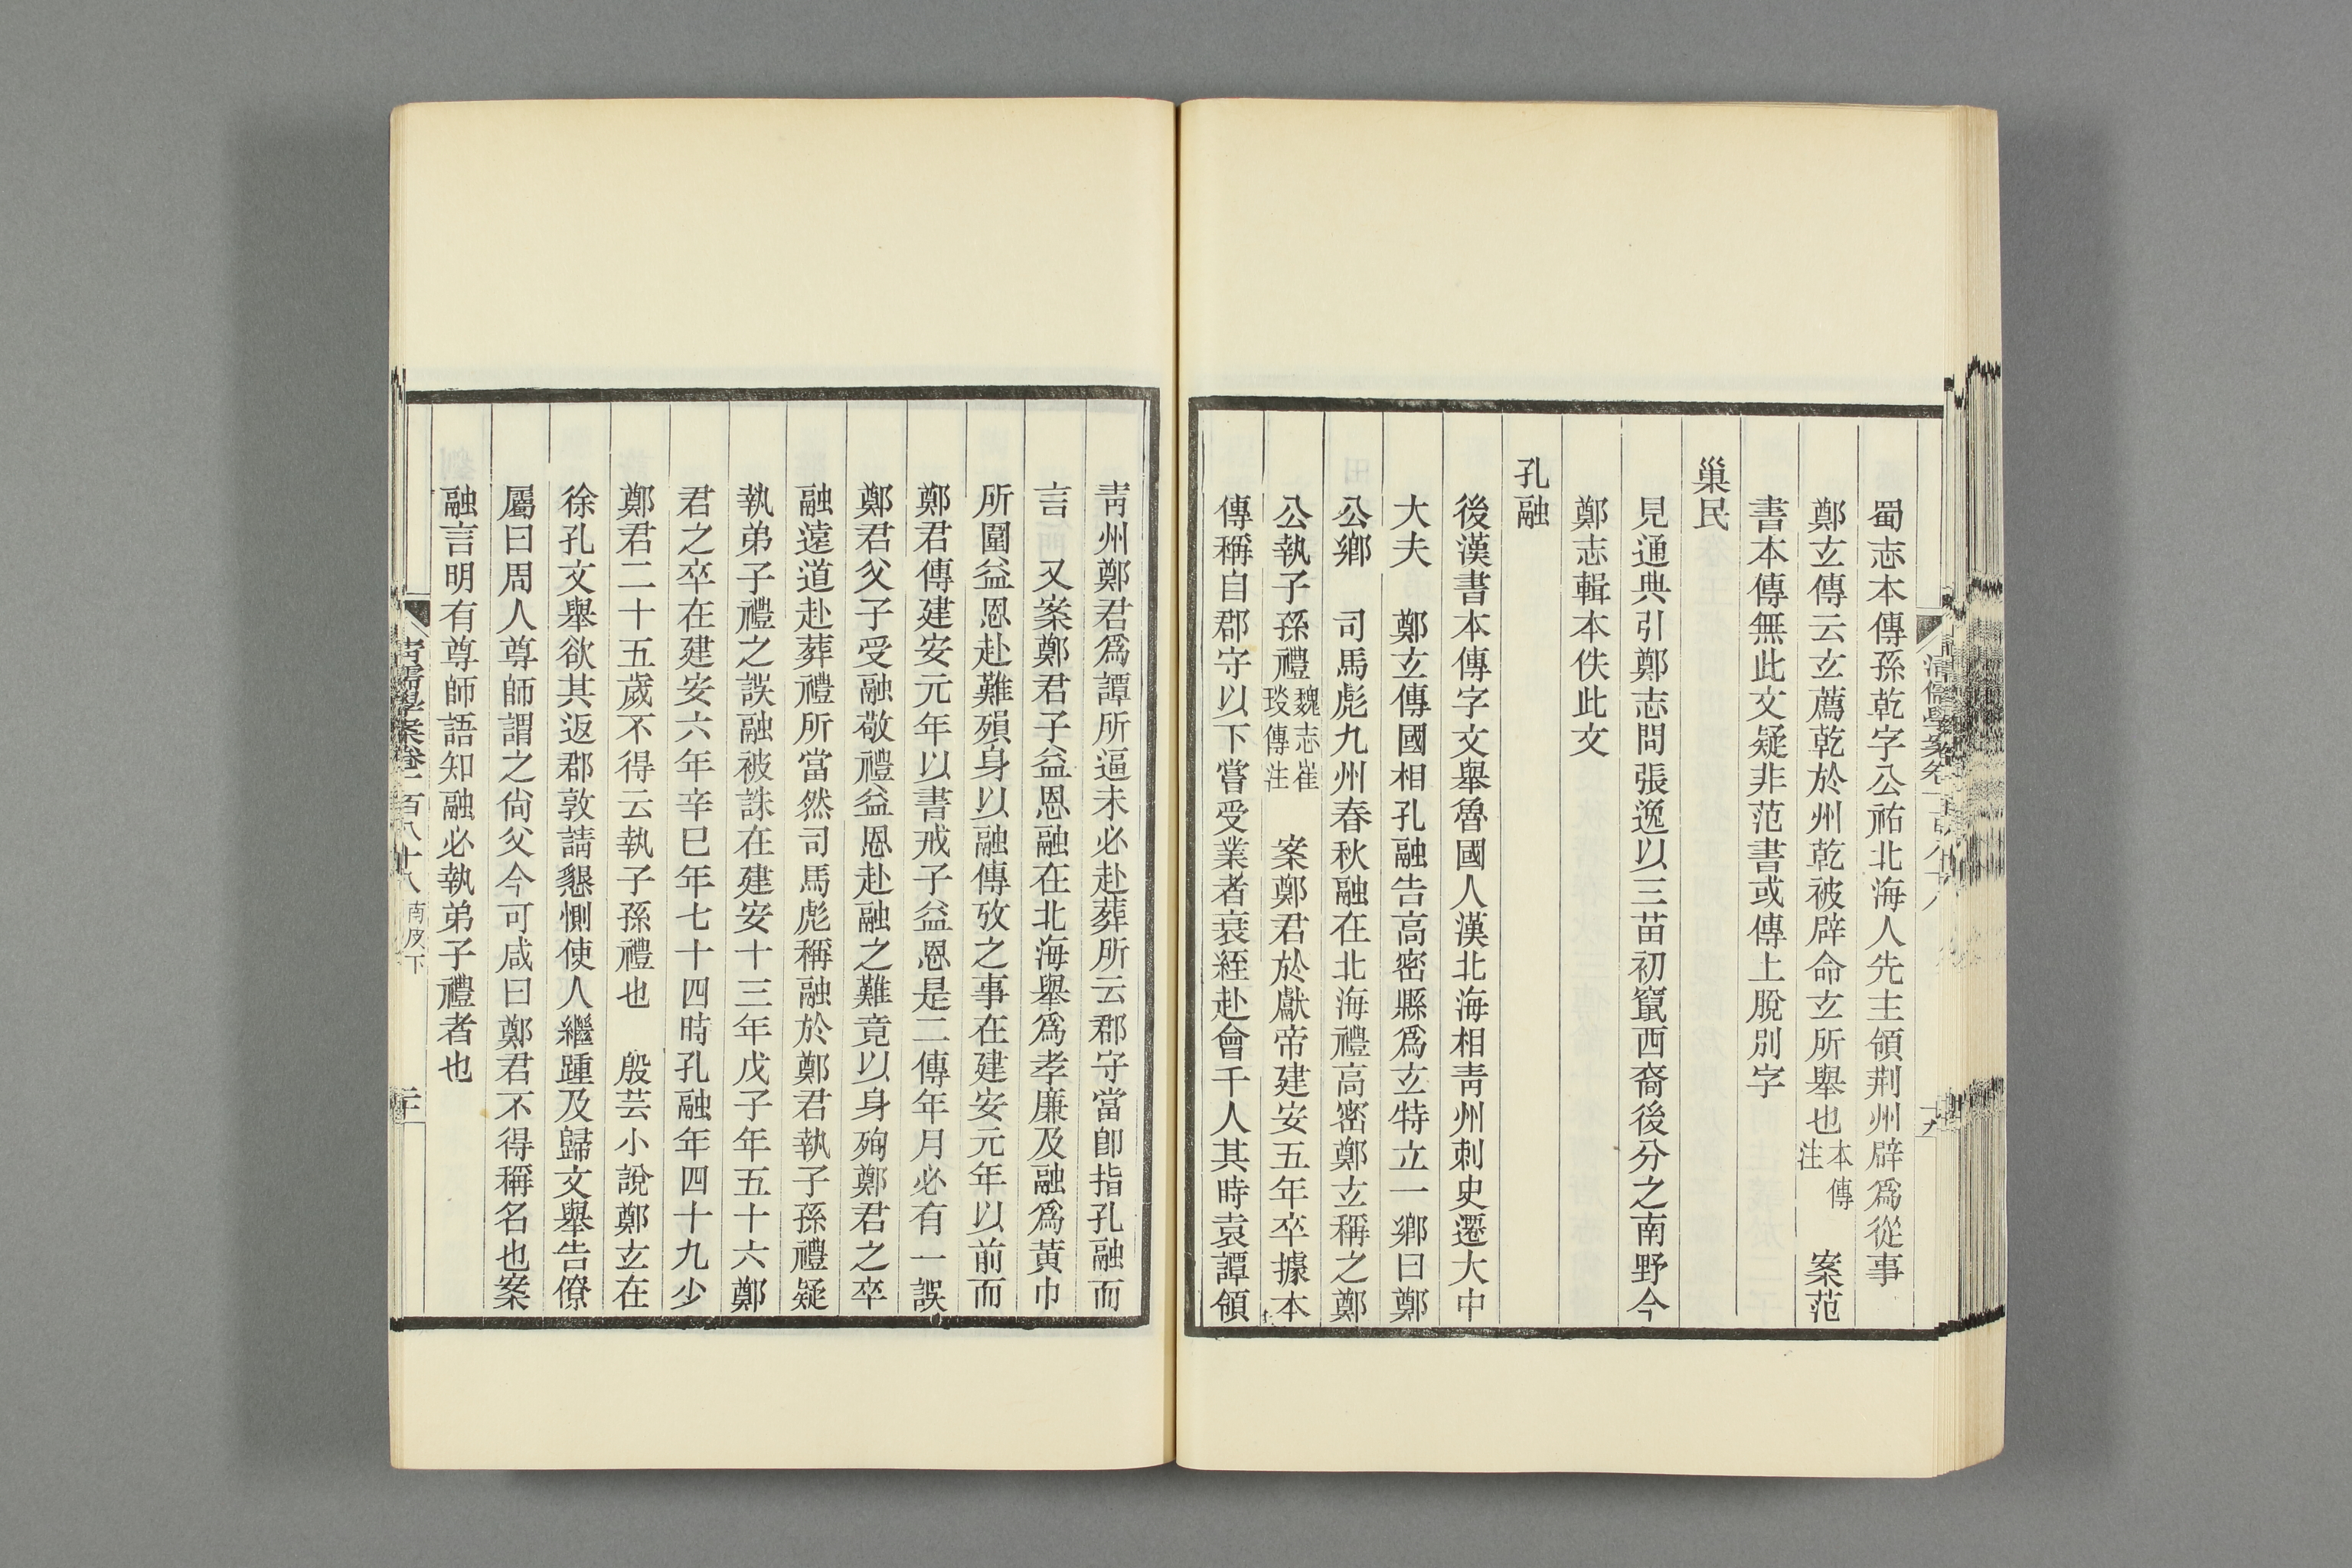 蜀志本傳孫乾字公祐北海人先主領荆州辟爲從事
鄭玄傳云玄薦乾於州乾被辟命玄所舉也本傳注　案范
書本傳無此文疑非范書或傳上脫別字
巢民
見通典引鄭志問張逸以三苗初竄西裔後分之南野今
鄭志輯本佚此文
孔融
後漢書本傳字文舉魯國人漢北海相靑州刺史遷大中
大夫　鄭玄傳國相孔融告高密縣爲玄特立一鄉曰鄭
公鄉　司馬彪九州春秋融在北海禮高密鄭玄稱之鄭
公執子孫禮魏志崔琰傳注　案鄭君於獻帝建安五年卒據本
傳稱自郡守以下嘗受業者衰絰赴會千人其時袁譚領
靑州鄭君爲譚所逼未必赴葬所云郡守當卽指孔融而
言　又案鄭君子益恩融在北海舉爲孝廉及融爲黃巾
所圍益恩赴難殞身以融傳攷之事在建安元年以前而
鄭君傳建安元年以書戒子益恩是二傳年月必有一誤
鄭君父子受融敬禮益恩赴融之難竟以身殉鄭君之卒
融遠道赴葬禮所當然司馬彪稱融於鄭君執子孫禮疑
執弟子禮之誤融被誅在建安十三年戊子年五十六鄭
君之卒在建安六年辛巳年七十四時孔融年四十九少
鄭君二十五歲不得云執子孫禮也　殷芸小說鄭玄在
徐孔文舉欲其返郡敦請懇惻使人繼踵及歸文舉告僚
屬曰周人尊師謂之尙父今可咸曰鄭君不得稱名也案
融言明有尊師語知融必執弟子禮者也
清儒學案卷一百八十八　南皮下